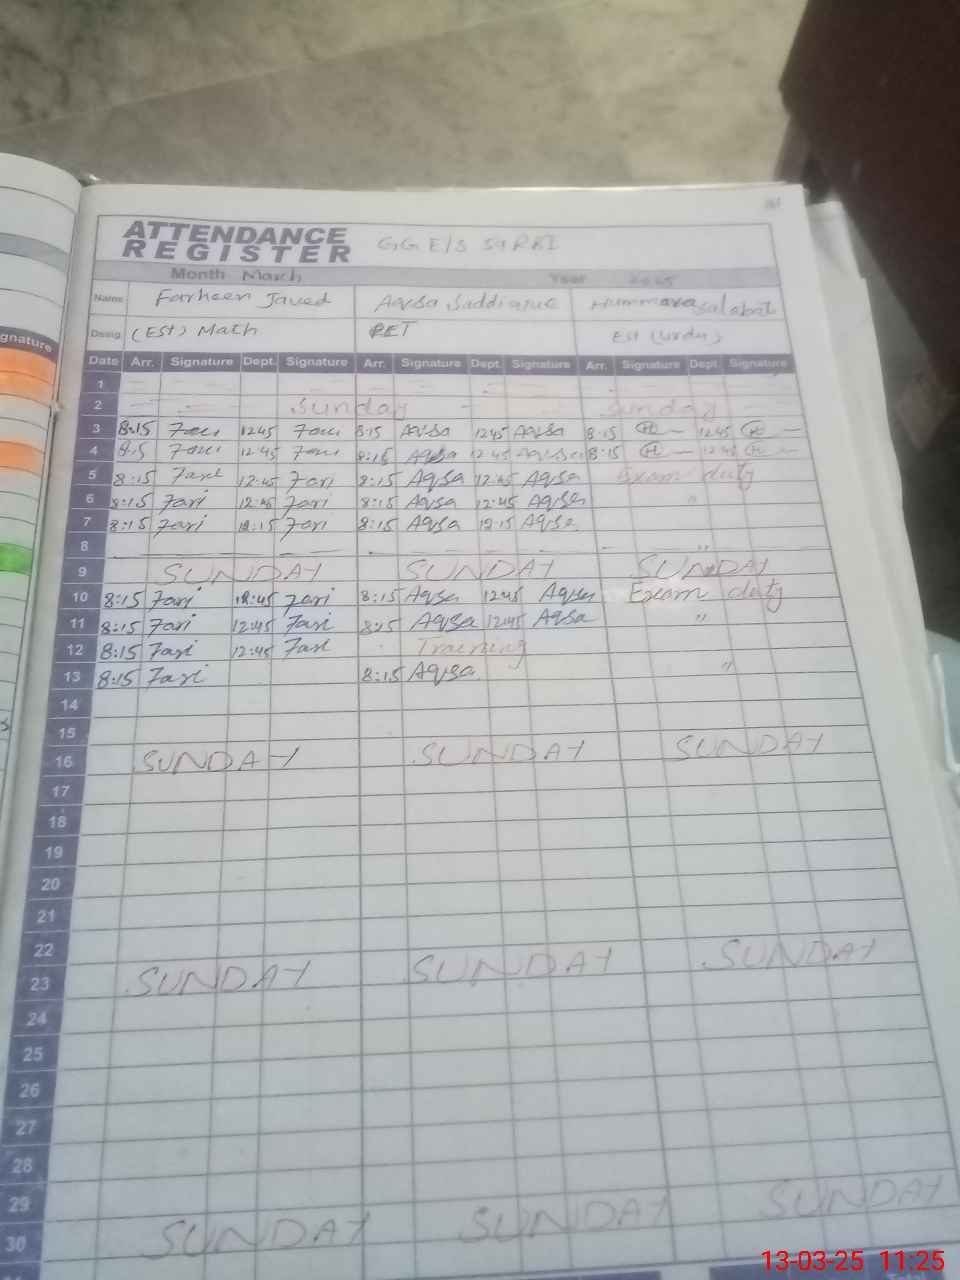 gnature
ATTENDANCE
REGISTER
GG E/S
Month March Year 2025
Name Farheen Javed Aqsa Saddique Hummara Salabat
Desig. (Est) Math Est (Urdu)
Date Arr. Signature Dept. Signature Arr. Signature Dept. Signature Arr. Signature Dept. Signature
1
2 Sunday Sunday
3 8:15 12:45 8:15 Aqsa 12:45 Aqsa 8:15 12:45
4 8:15 12:45 8:15 Aqsa 12:45 Aqsa 8:15 12:45
5 8:15 Fari 12:45 Fari 8:15 Aqsa 12:45 Aqsa Exam duty
6 8:15 Fari 12:45 Fari 8:15 Aqsa 12:45 Aqsa "
7 8:15 Fari 12:15 Fari 8:15 Aqsa 12:15 Aqsa
8 "
9 SUNDAY SUNDAY SUNDAY
10 8:15 Fari 12:45 Fari 8:15 Aqsa 12:45 Aqsa Exam duty
11 8:15 Fari 12:45 Fari 8:15 Aqsa 12:45 Aqsa "
12 8:15 Fari 12:45 Fari Training
13 8:15 Fari 8:15 Aqsa "
14
15
16 SUNDAY SUNDAY SUNDAY
17
18
19
20
21
22
23 SUNDAY SUNDAY SUNDAY
24
25
26
27
28
29
30 SUNDAY SUNDAY SUNDAY
13-03-25 11:25